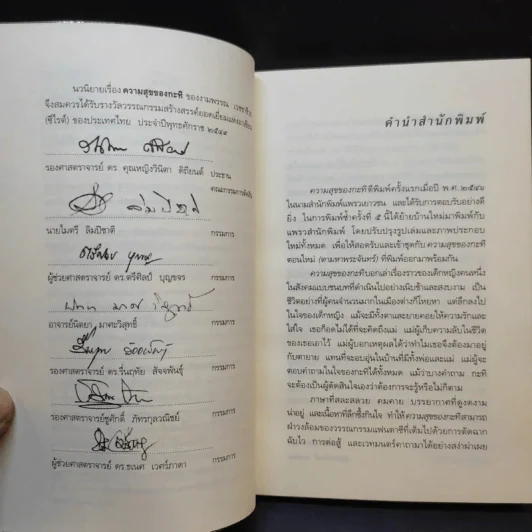 นวนิยายเรื่อง ความสุขของกะทิ ของงามพรรณ เวชชาชีวะ
จึงสมควรได้รับรางวัลวรรณกรรมสร้างสรรค์ยอดเยี่ยมแห่งอาเซียน
(ซีไรต์) ของประเทศไทย ประจำปีพุทธศักราช ๒๕๔๙
รองศาสตราจารย์ ดร. คุณหญิงวินิตา ดิถียนต์ ประธาน
คณะกรรมการตัดสิน
นายไมตรี ลิมปิชาติ กรรมการ
ผู้ช่วยศาสตราจารย์ ดร.ตรีศิลป์ บุญขจร กรรมการ
อาจารย์นิตยา มาศะวิสุทธิ์ กรรมการ
รองศาสตราจารย์ ดร.รื่นฤทัย สัจจพันธุ์ กรรมการ
รองศาสตราจารย์ชูศักดิ์ ภัทรกุลวณิชย์ กรรมการ
ผู้ช่วยศาสตราจารย์ ดร.ธเนศ เวศร์ภาดา กรรมการ
คำนำสำนักพิมพ์
ความสุขของกะทิ ตีพิมพ์ครั้งแรกเมื่อปี พ.ศ.๒๕๔๖
ในนามสำนักพิมพ์แพรวเยาวชน และได้รับการตอบรับอย่างดี
ยิ่ง ในการพิมพ์ซ้ำครั้งที่ ๕ นี้ได้ย้ายบ้านใหม่มาพิมพ์กับ
แพรวสำนักพิมพ์ โดยปรับปรุงรูปเล่มและภาพประกอบ
ใหม่ทั้งหมด เพื่อให้สอดรับและเข้าชุดกับ ความสุขของกะทิ
ตอนใหม่ (ตามหาพระจันทร์) ที่พิมพ์ออกมาพร้อมกัน
ความสุขของกะทิ บอกเล่าเรื่องราวของเด็กหญิงคนหนึ่ง
ในสังคมแบบชนบทที่ดำเนินไปอย่างเนิบช้าและสงบงาม เป็น
ชีวิตอย่างที่ผู้คนจำนวนมากในเมืองต่างก็โหยหา แต่ลึกลงไป
ในใจของเด็กหญิง แม้จะมีทั้งตาและยายคอยให้ความรักและ
ใส่ใจ เธอก็อดไม่ได้ที่จะคิดถึงแม่ แม่ผู้เก็บความลับในชีวิต
ของเธอเอาไว้ แม่ผู้บอกเหตุผลได้ว่าทำไมเธอจึงต้องมาอยู่
กับตายาย แทนที่จะอบอุ่นในบ้านที่มีทั้งพ่อและแม่ แม่ผู้จะ
ตอบคำถามในใจของกะทิได้ทั้งหมด แม้ว่าบางคำถาม กะทิ
จะต้องเป็นผู้ตัดสินใจเองว่าต้องการจะรู้หรือไม่ก็ตาม
ภาษาที่สละสลวย คมคาย บรรยากาศที่ดูงดงาม
น่าอยู่ และเนื้อหาที่ลึกซึ้งกินใจ ทำให้ ความสุขของกะทิ สามารถ
ฝ่าวงล้อมของวรรณกรรมแฟนตาซีที่เต็มไปด้วยการตัดฉาก
ฉับไว การต่อสู้ และเวทมนตร์คาถามาได้อย่างสง่าผ่าเผย